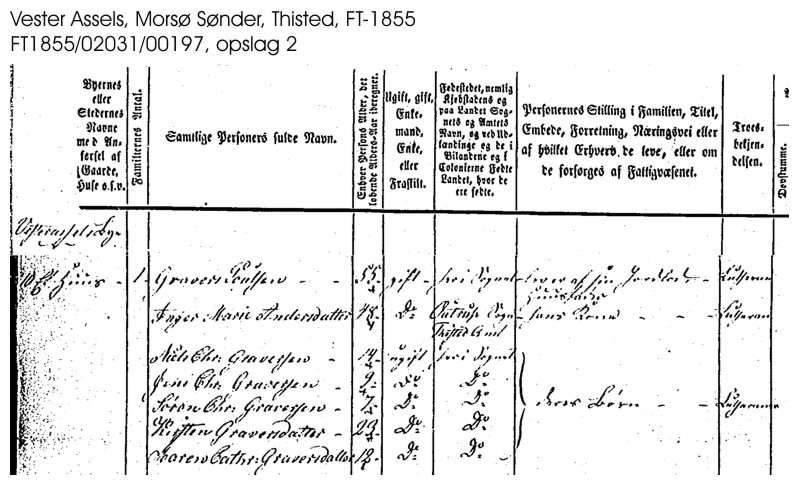 Vester Assels, Morsø Sønder, Thisted, FT-1855
FT1855/02031/00197, opslag 2
Byernes
eller
Stedernes
Navne
med An-
førsel af
Gaarde,
Huse o.s.v.
Familiernes Antal.
Samtlige Personers fulde Navn.
Enhver Persons Alder, det
løbende Alders-Aar iberegnet.
Ugift, gift,
Enke-
mand,
Enke,
eller
Fraskilt.
Fødestedet, nemlig
Kjøbstadens og
paa Landet Sog-
nets og Amtets
Navn, og ved Ud-
lændinge og de i
Bilandene og i
Colonierne Fødte
Landet, hvor de
ere fødte.
Personernes Stilling i Familien, Titel,
Embede, Forretning, Næringsvei eller
af hvilket Erhverv de leve, eller om
de forsørges af Fattigvæsenet.
Troes-
bekjen-
delsen.
Døvstumme.
Vesterassels By
Huus 1 Gravers Poulsen 55 gift her i Sognet lever af sin Jordlod Lutheran
Huusfader
Inger Marie Andersdatter 48 Do Outrup Sogn hans Kone Lutheran
Thisted Amt
Niels Chr: Graversen 14 ugift her i Sognet
Jens Chr: Graversen 9 Do Do
Søren Chr: Graversen 7 Do Do deres Børn Lutheranere
Kirsten Graversdatter 23 Do Do
Maren Cathr: Graversdatter 12 Do Do